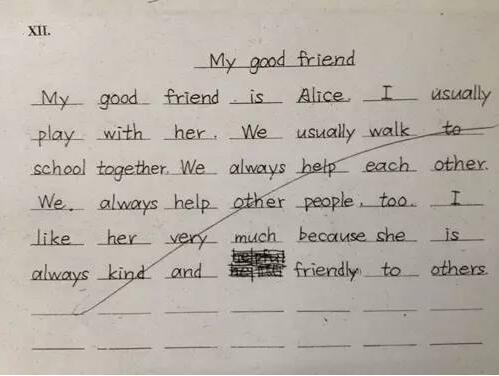 XII.
My good friend
My good friend is Alice. I usually
play with her. We usually walk to
school together. We always help each other.
We. always help other people, too. I
like her very much because she is
always kind and friendly to others.